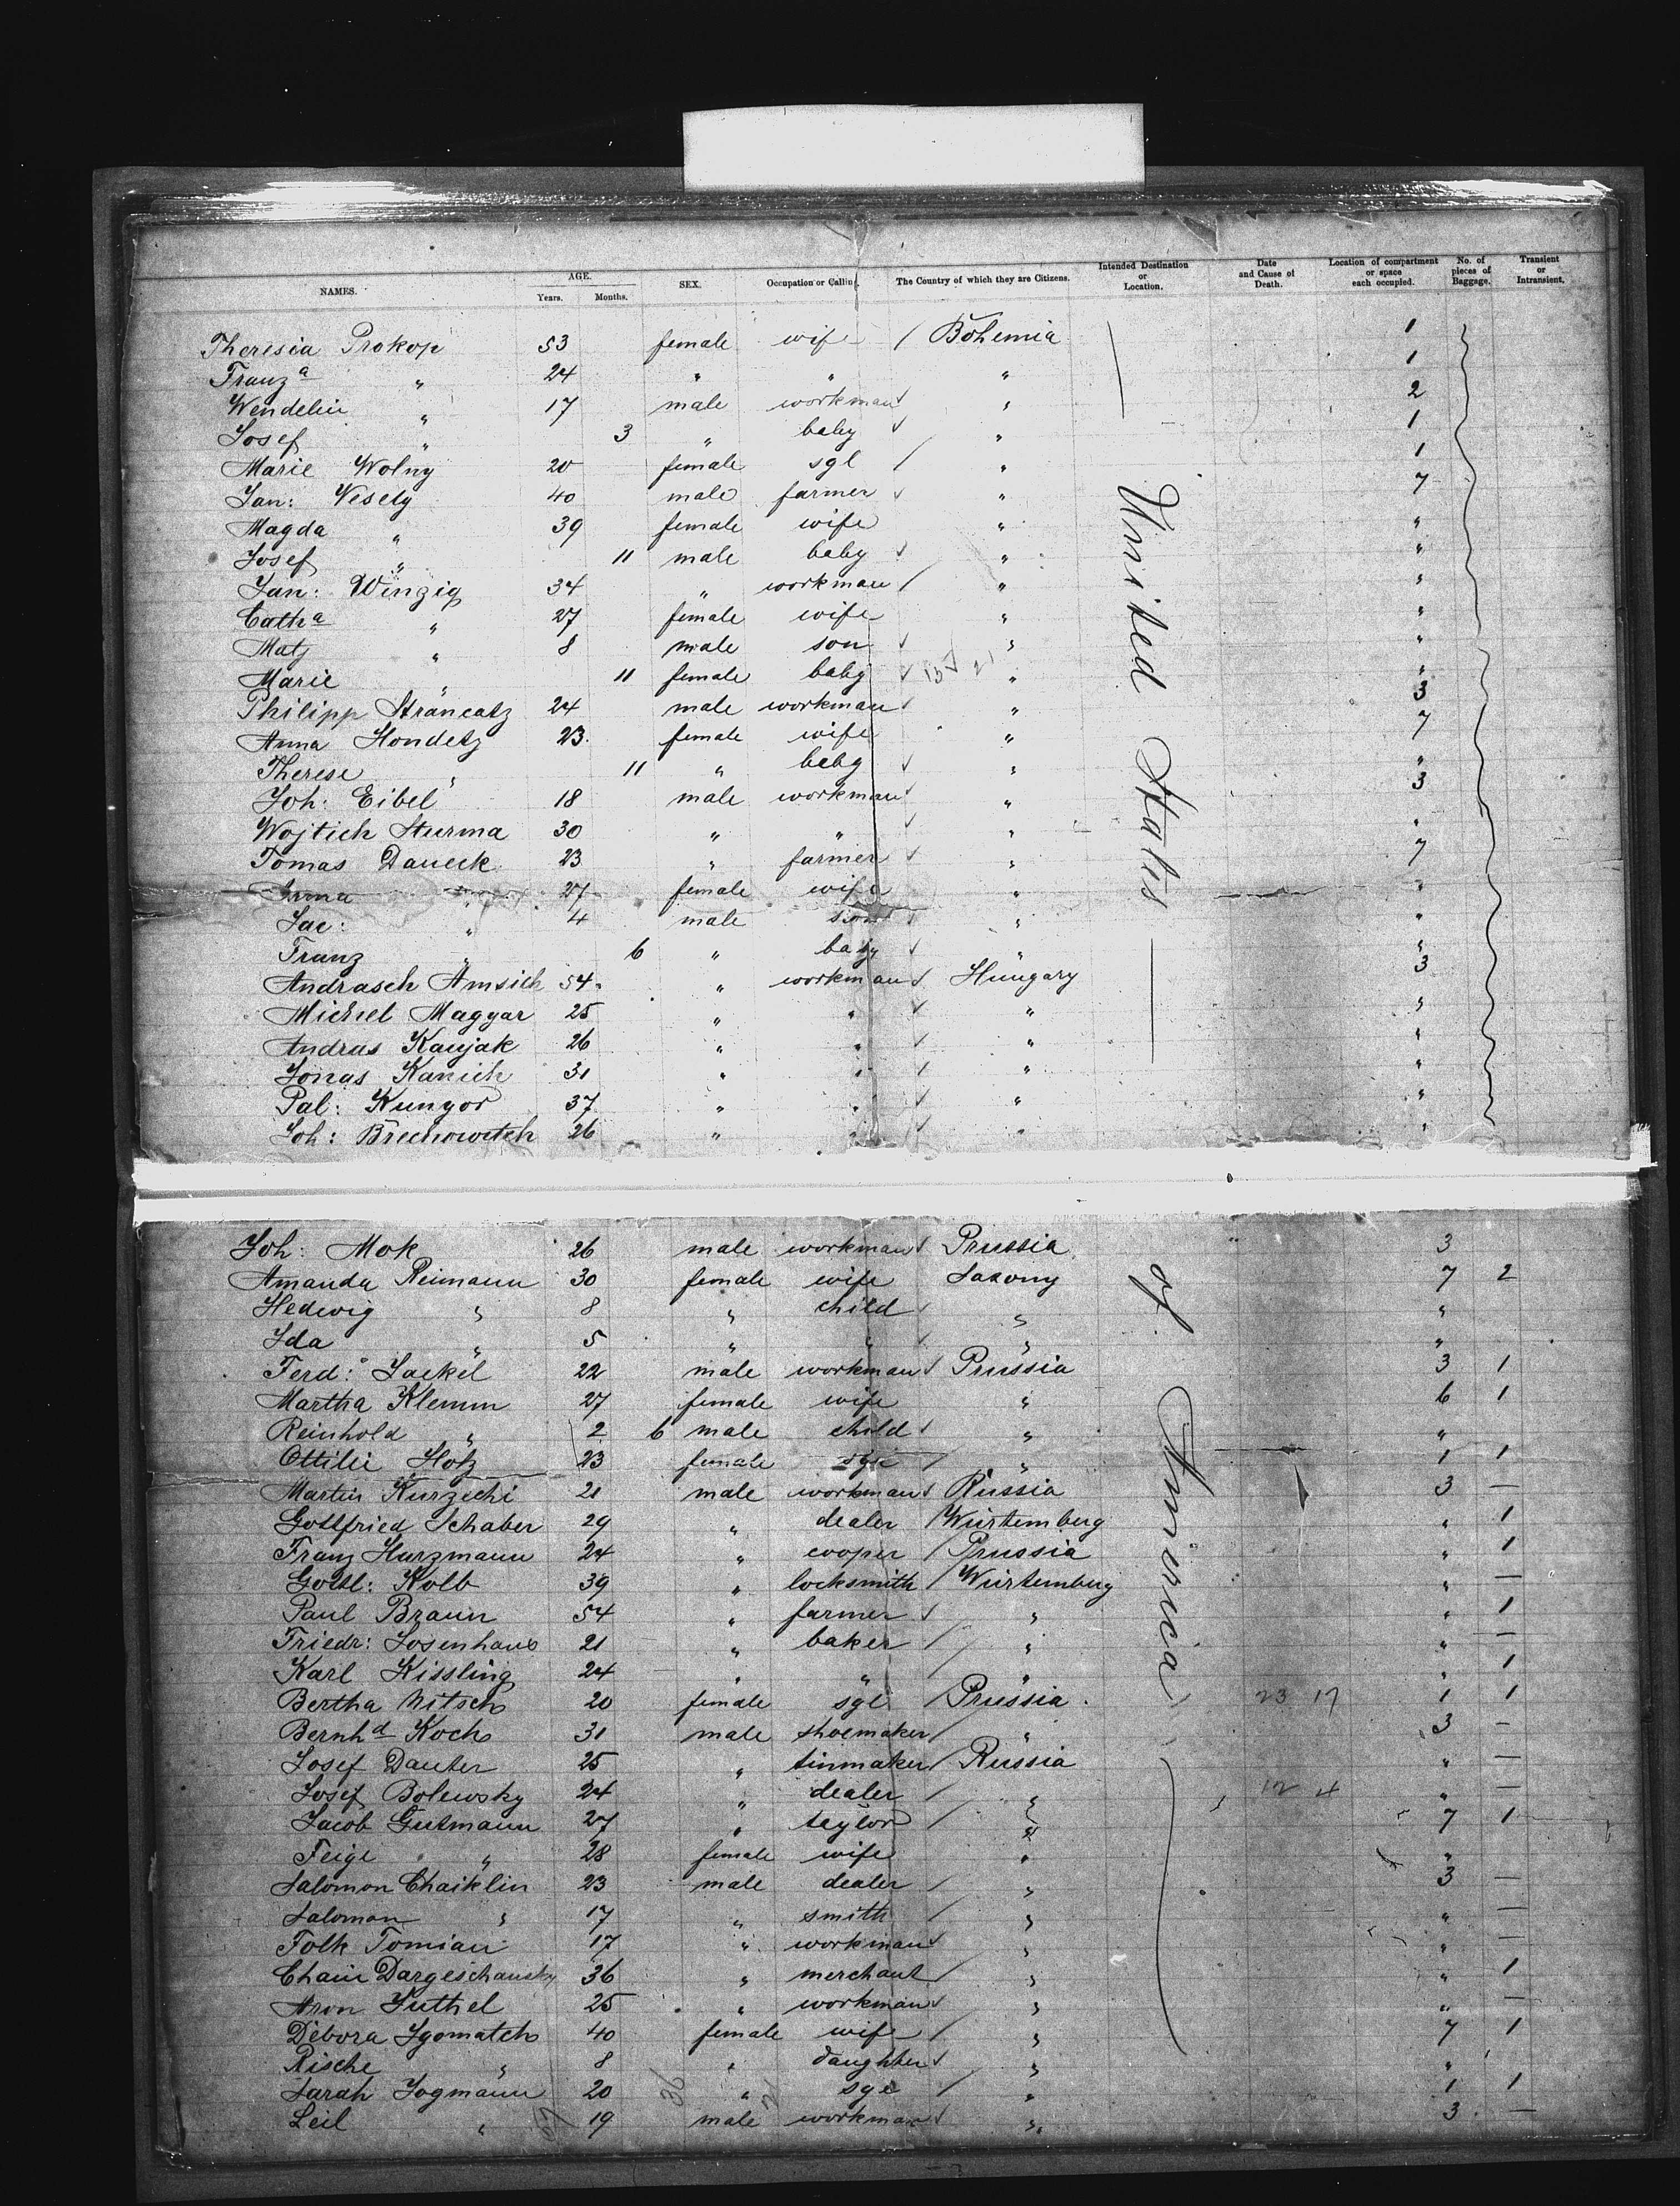 NAMES. AGE. Years. Months. SEX. Occupation or Calling. The Country of which they are Citizens. Intended Destination or Location. Date and Cause of Death. Location of compartment or space each occupied. No. of pieces of Baggage. Transient or Intransient.
Theresia Prokop 53 female wife / Bohemia 1
Franz a " 24 " " " 1
Wendelin " 17 male workman " 2
Josef " 3 " baby " 1
Marie Wolny 20 female sgl / " 1
Jan: Vesely 40 male farmer " 7
Magda " 39 female wife " "
Josef " 11 male baby " "
Jan: Winzig 34 " workman / " "
Cath a " 27 female wife " "
Matj " 8 male son " "
Marie 11 female baby " "
Philipp Strancatz 24 male workman " 3
Anna Hondetz 23 female wife " 7
Therese " 11 " baby " "
Joh: Eibel 18 male workman " 3
Wojtich Sturma 30 " " " "
Tomas Daneck 23 " farmer " 7
Anna " 27 female wife " "
Jac: " 4 male son " "
Franz " 6 " baby " "
Andrasch Amsich 54 " workman Hungary 3
Michel Magyar 25 " " " "
Andras Kanjak 26 " " " "
Jonas Kanich 31 " " " "
Pal: Kungor 37 " " " "
Joh: Brechowitch 26 " " " "
United States
Joh: Mok 26 male workman Prussia 3
Amanda Reimann 30 female wife Saxony 7 2
Hedwig " 8 " child " "
Ida " 5 " " " "
Ferd: Jaekel 22 male workman Prussia 3 1
Martha Klemm 27 female wife " 6 1
Reinhold " 2 6 male child " "
Ottilie Hotz 23 female sgl / " 1 1
Martin Kurzechi 21 male workman Russia 3 —
Gottfried Schaber 29 " dealer / Würtemberg " 1
Franz Harzmann 24 " cooper / Prussia " 1
Gottl: Kolb 39 " locksmith / Würtemberg " —
Paul Braun 54 " farmer " " 1
Friedr: Losenhaus 21 " baker / " " —
Karl Kissling 24 " " " " 1
Bertha Nitsch 20 female sgl / Prussia 23 17 1 1
Bernh d Koch 31 male shoemaker / " 3 —
Josef Dauter 25 " tinmaker / Russia " —
Josef Bolewsky 24 " dealer / " 12 4 " —
Jacob Gutmann 27 " taylor / " 7 1
Feige " 28 female wife " "
Salomon Chaiklin 23 male dealer / " 3 —
Salomon " 17 " smith / " " —
Folk Tomian 17 " workman " " —
Chaim Dargeschansky 36 " merchant / " " 1
Aron Juthel 25 " workman " " —
Debora Igomatch 40 female wife / " 7 1
Rische " 8 " daughter " "
Sarah Jogmann 20 " sgl / " 1 1
Leil " 19 male workman " 3 —
of America